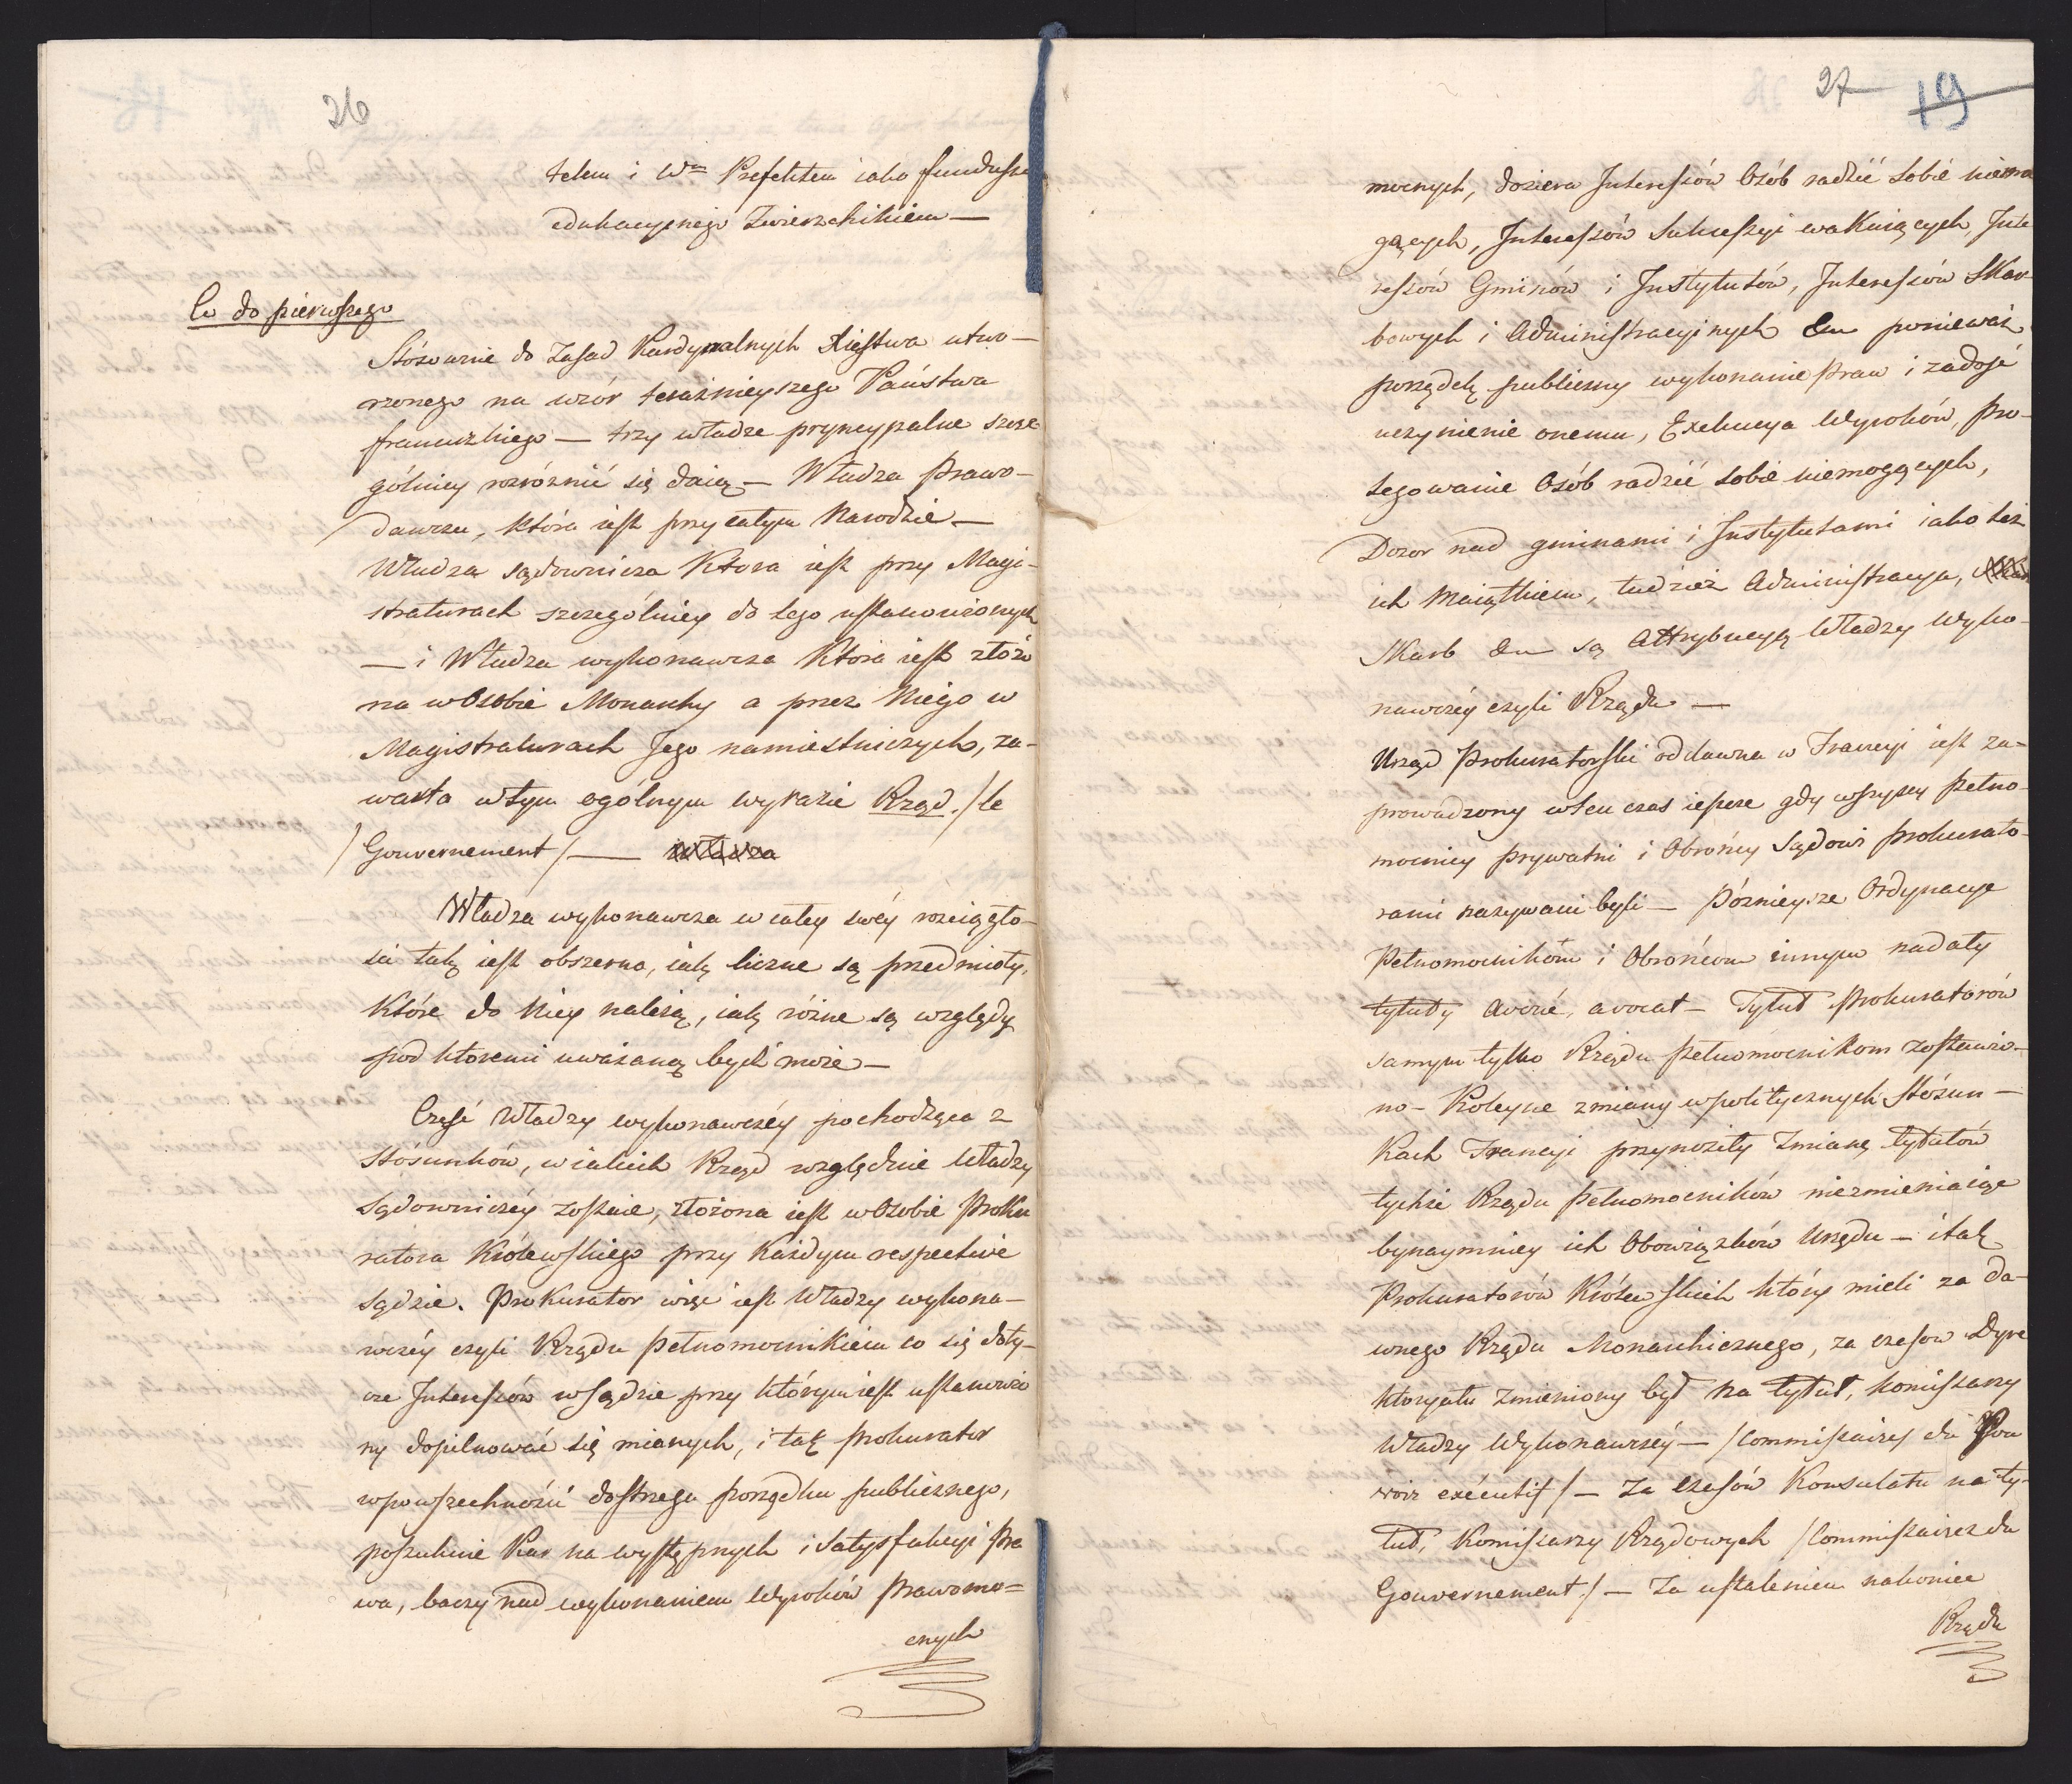 26
telem i Wm Prefektem iako funduszu
edukacyinego Zwierzchnikiem —
Co do pierwszego
Stósownie do Zasad Kardynalnych Xięstwa utwo-
rzonego na wzór teraźnieyszego Państwa
francuzkiego — trzy władze pryncypalne szcze-
gólniey rozróżnić się daią — Władza Prawo-
dawcza, która iest przy całym Narodzie —
Władza sądownicza Ktora iest przy Magi-
straturach szczególniey do tego ustanowionych
— i Władza wykonawcza Ktora iest złożo
na w Osobie Monarchy a przez Niego w
Magistraturach Jego namiestniczych, za-
warta w tym ogólnym wyrazie Rząd. /le
/Gouvernement/ — władza
Władza wykonawcza w całey swéy rozciągło-
ści tak iest obszerna, iak liczne są przedmioty,
Które do Niey należą, iak różne są względy
pod któremi uważaną bydź może —
Część Władzy wykonawczéy pochodząca z
stósunków, w iakich Rząd względnie Władzy
Sądowniczéy zostaie, złożona iest w Osobie Proku
ratora Królewskiego przy Każdym respective
Sądzie. Prokurator więc iest Władzy wykona-
wczéy czyli Rządu Pełnomocnikiem co się doty-
cze Interessów w Sądzie przy którym iest ustanowio
ny dopilnować się mianych, i tak Prokurator
w powszechności dostrzega porządku publicznego,
poszukuie Kar na występnych i Satysfakcyi Pra
wa, baczy nad wykonaniem Wyroków Prawomo=
cnych
27 19
mocnych, doziera Interessów Osób radzić sobie niemo
gących, Interessów Sukcessyi wakuiących, Inte
ressów Gminów i Instytutów, Interessów Skar-
bowych i Administracyinych &c ponieważ
porządek publiczny wykonanie Praw i zadość
uczynienie onemu, Exekucya Wyroków, Pro-
tegowanie Osób radzić sobie niemogących,
Dozor nad gminami i Instytutami iako też
ich Maiątkiem, tudzież Administracya,
Skarb &c są Attrybucyą Władzy Wyko-
nawczéy czyli Rządu —
Urząd Prokuratorski oddawna w Francyi iest za-
prowadzony w ten czas ieszcze gdy wszyscy Pełno-
mocnicy prywatni i Obrońcy Sądowi Prokurato-
rami nazywani byli — Poźnieysze Ordynacye
Pełnomocników i Obrońcom innym nadały
tytuły avoué, avocat — Tytuł Prokuratorów
samym tylko Rządu Pełnomocnikom zostawio-
no — Koleyne zmiany w politycznych stósun-
kach Francyi przynosiły Zmianę tytułów
tychże Rządu Pełnomocników niezmieniaiąc
bynaymniey ich Obowiązków Urzędu — i tak
Prokuratorów Królewskich który mieli za da-
wnego Rządu Monarchicznego, za czasow Dyre
ktoryatu Zmieniony był na tytuł, Komissarzy
Władzy Wykonawczéy — /Commissaires du Pou
voir exécutif/ — Za czasów Konsulatu na ty-
tuł, Komissarzy Rządowych /Commissaires du
Gouvernement/ — Za ustaleniem nakoniec
Rządu